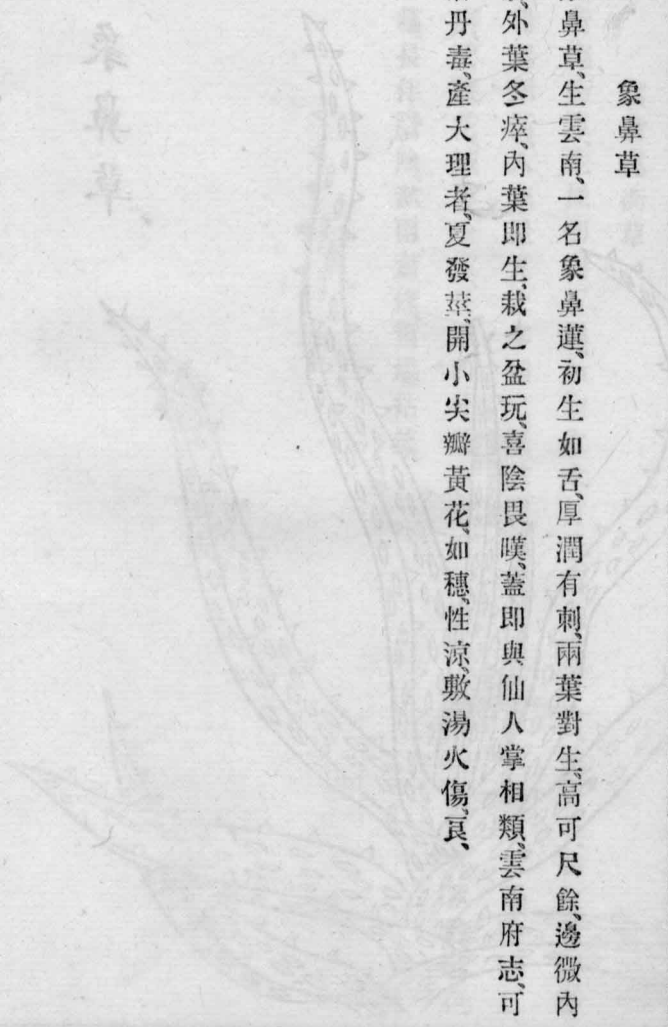 象鼻草
鼻草、生雲南、一名象鼻蓮、初生如舌、厚潤有刺、兩葉對生、高可尺餘、邊微內
外葉冬瘁、內葉即生、栽之盆玩、喜陰畏暵、蓋即與仙人掌相類、雲南府志、可
丹毒、產大理者、夏發莖、開小尖瓣黃花、如穗、性涼、敷湯火傷、良、